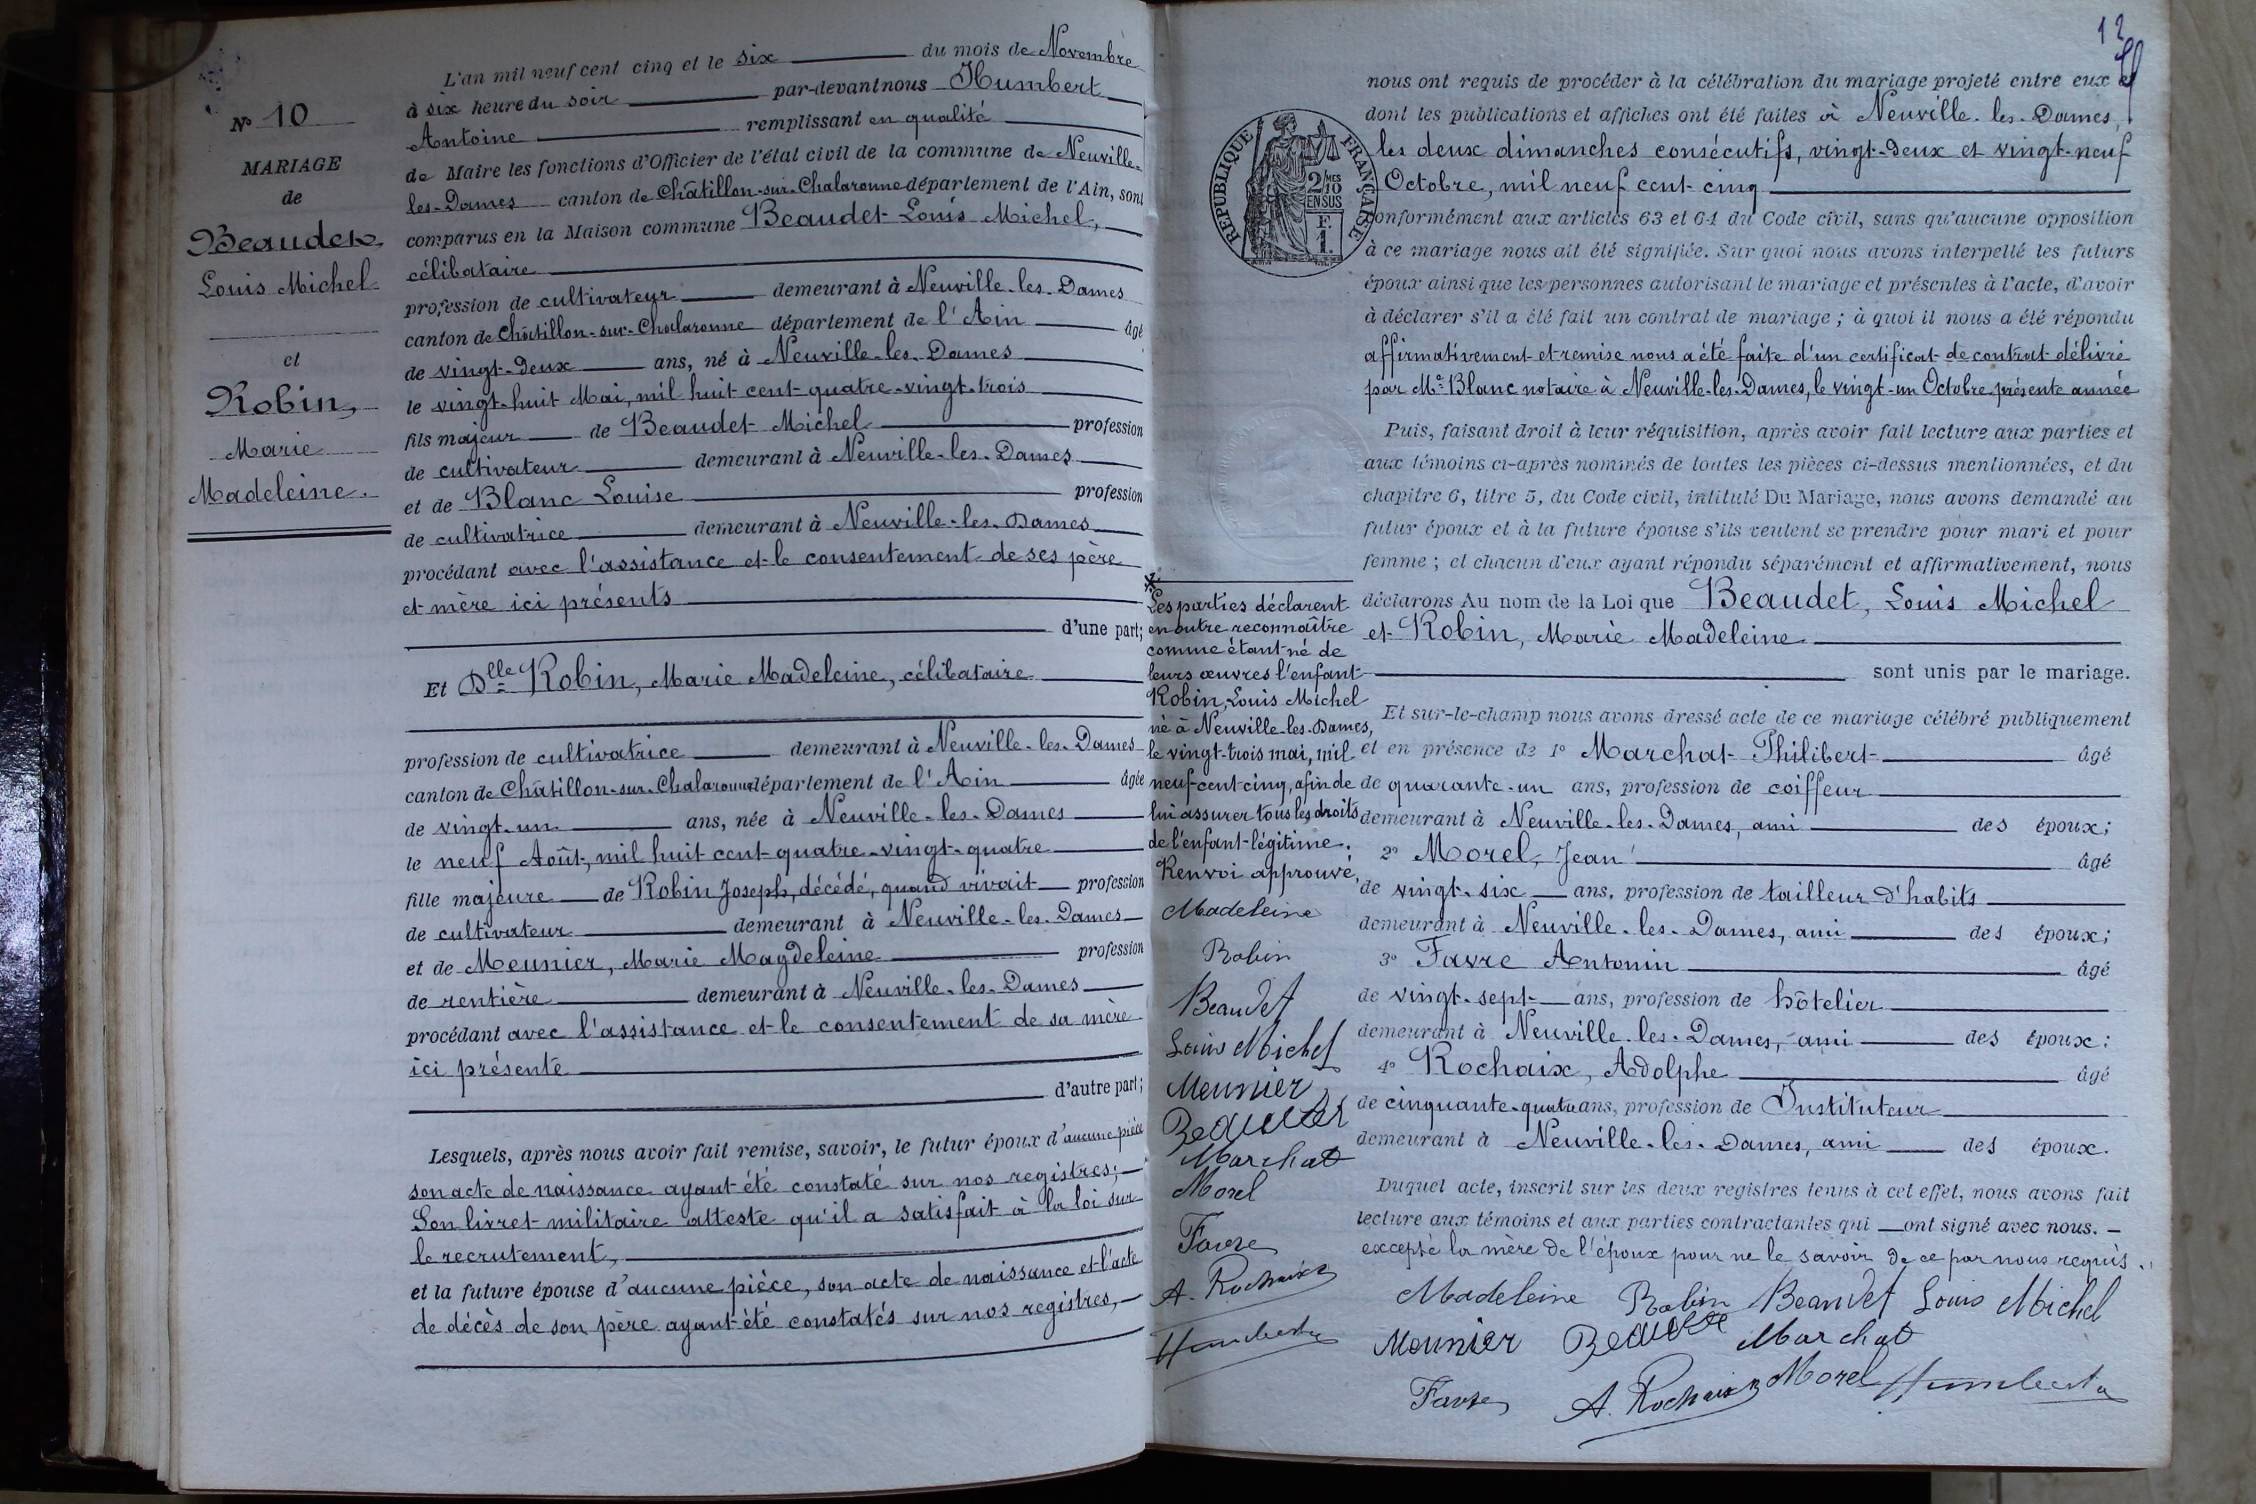 N° 10
MARIAGE
de
Beaudet,
Louis Michel
et
Robin,
Marie
Madeleine.
L'an mil neuf cent cinq et le six du mois de Novembre
à six heure du soir par-devant nous Humbert
Antoine remplissant en qualité
de Maire les fonctions d'Officier de l'état civil de la commune de Neuville-
les-Dames canton de Châtillon-sur-Chalaronne département de l'Ain, sont
comparus en la Maison commune Beaudet Louis Michel,
célibataire
profession de cultivateur demeurant à Neuville-les-Dames
canton de Châtillon-sur-Chalaronne département de l'Ain âgé
de vingt-deux ans, né à Neuville-les-Dames
le vingt-huit Mai, mil huit cent quatre-vingt-trois
fils majeur de Beaudet Michel profession
de cultivateur demeurant à Neuville-les-Dames
et de Blanc Louise profession
de cultivatrice demeurant à Neuville-les-Dames
procédant avec l'assistance et le consentement de ses père
et mère ici présents
d'une part;
Et Dlle Robin, Marie Madeleine, célibataire
profession de cultivatrice demeurant à Neuville-les-Dames
canton de Châtillon-sur-Chalaronne département de l'Ain âgée
de vingt-un ans, née à Neuville-les-Dames
le neuf Août, mil huit cent quatre-vingt-quatre
fille majeure de Robin Joseph, décédé, quand vivait profession
de cultivateur demeurant à Neuville-les-Dames
et de Meunier, Marie Magdeleine profession
de rentière demeurant à Neuville-les-Dames
procédant avec l'assistance et le consentement de sa mère
ici présente
d'autre part;
Lesquels, après nous avoir fait remise, savoir, le futur époux d'aucune pièce
son acte de naissance ayant été constaté sur nos registres;
Son livret militaire atteste qu'il a satisfait à la loi sur
le recrutement,
et la future épouse d'aucune pièce, son acte de naissance et l'acte
de décès de son père ayant été constatés sur nos registres,
12
nous ont requis de procéder à la célébration du mariage projeté entre eux et
dont les publications et affiches ont été faites à Neuville-les-Dames,
les deux dimanches consécutifs, vingt-deux et vingt-neuf
Octobre, mil neuf cent cinq
conformément aux articles 63 et 64 du Code civil, sans qu'aucune opposition
à ce mariage nous ait été signifiée. Sur quoi nous avons interpellé les futurs
époux ainsi que les personnes autorisant le mariage et présentes à l'acte, d'avoir
à déclarer s'il a été fait un contrat de mariage; à quoi il nous a été répondu
affirmativement et remise nous a été faite d'un certificat de contrat délivré
par Me Blanc notaire à Neuville-les-Dames, le vingt-un Octobre présente année
Puis, faisant droit à leur réquisition, après avoir fait lecture aux parties et
aux témoins ci-après nommés de toutes les pièces ci-dessus mentionnées, et du
chapitre 6, titre 5, du Code civil, intitulé Du Mariage, nous avons demandé au
futur époux et à la future épouse s'ils veulent se prendre pour mari et pour
femme; et chacun d'eux ayant répondu séparément et affirmativement, nous
déclarons Au nom de la Loi que Beaudet, Louis Michel
et Robin, Marie Madeleine
sont unis par le mariage.
Et sur-le-champ nous avons dressé acte de ce mariage célébré publiquement
et en présence de 1° Marchat Philibert âgé
de quarante-un ans, profession de coiffeur
demeurant à Neuville-les-Dames, ami des époux;
2° Morel, Jean âgé
de vingt-six ans, profession de tailleur d'habits
demeurant à Neuville-les-Dames, ami des époux;
3° Favre Antonin âgé
de vingt-sept ans, profession de hôtelier
demeurant à Neuville-les-Dames, ami des époux;
4° Rochaix, Adolphe âgé
de cinquante-quatre ans, profession de Instituteur
demeurant à Neuville-les-Dames, ami des époux.
Duquel acte, inscrit sur les deux registres tenus à cet effet, nous avons fait
lecture aux témoins et aux parties contractantes qui ont signé avec nous.
excepté la mère de l'époux pour ne le savoir de ce par nous requis.
Madeleine Robin Beaudet Louis Michel
Meunier Beaudet Marchat
Favre A. Rochaix Morel Humbert
RÉPUBLIQUE FRANÇAISE
2/10 MES
EN SUS
F.
1.
Les parties déclarent
en outre reconnaître
comme étant né de
leurs œuvres l'enfant
Robin, Louis Michel
né à Neuville-les-Dames,
le vingt-trois mai, mil
neuf cent cinq, afin de
lui assurer tous les droits
de l'enfant légitime.
Renvoi approuvé,
Madeleine
Robin
Beaudet
Louis Michel
Meunier
Beaudet
Marchat
Morel
Favre
A. Rochaix
Humbert